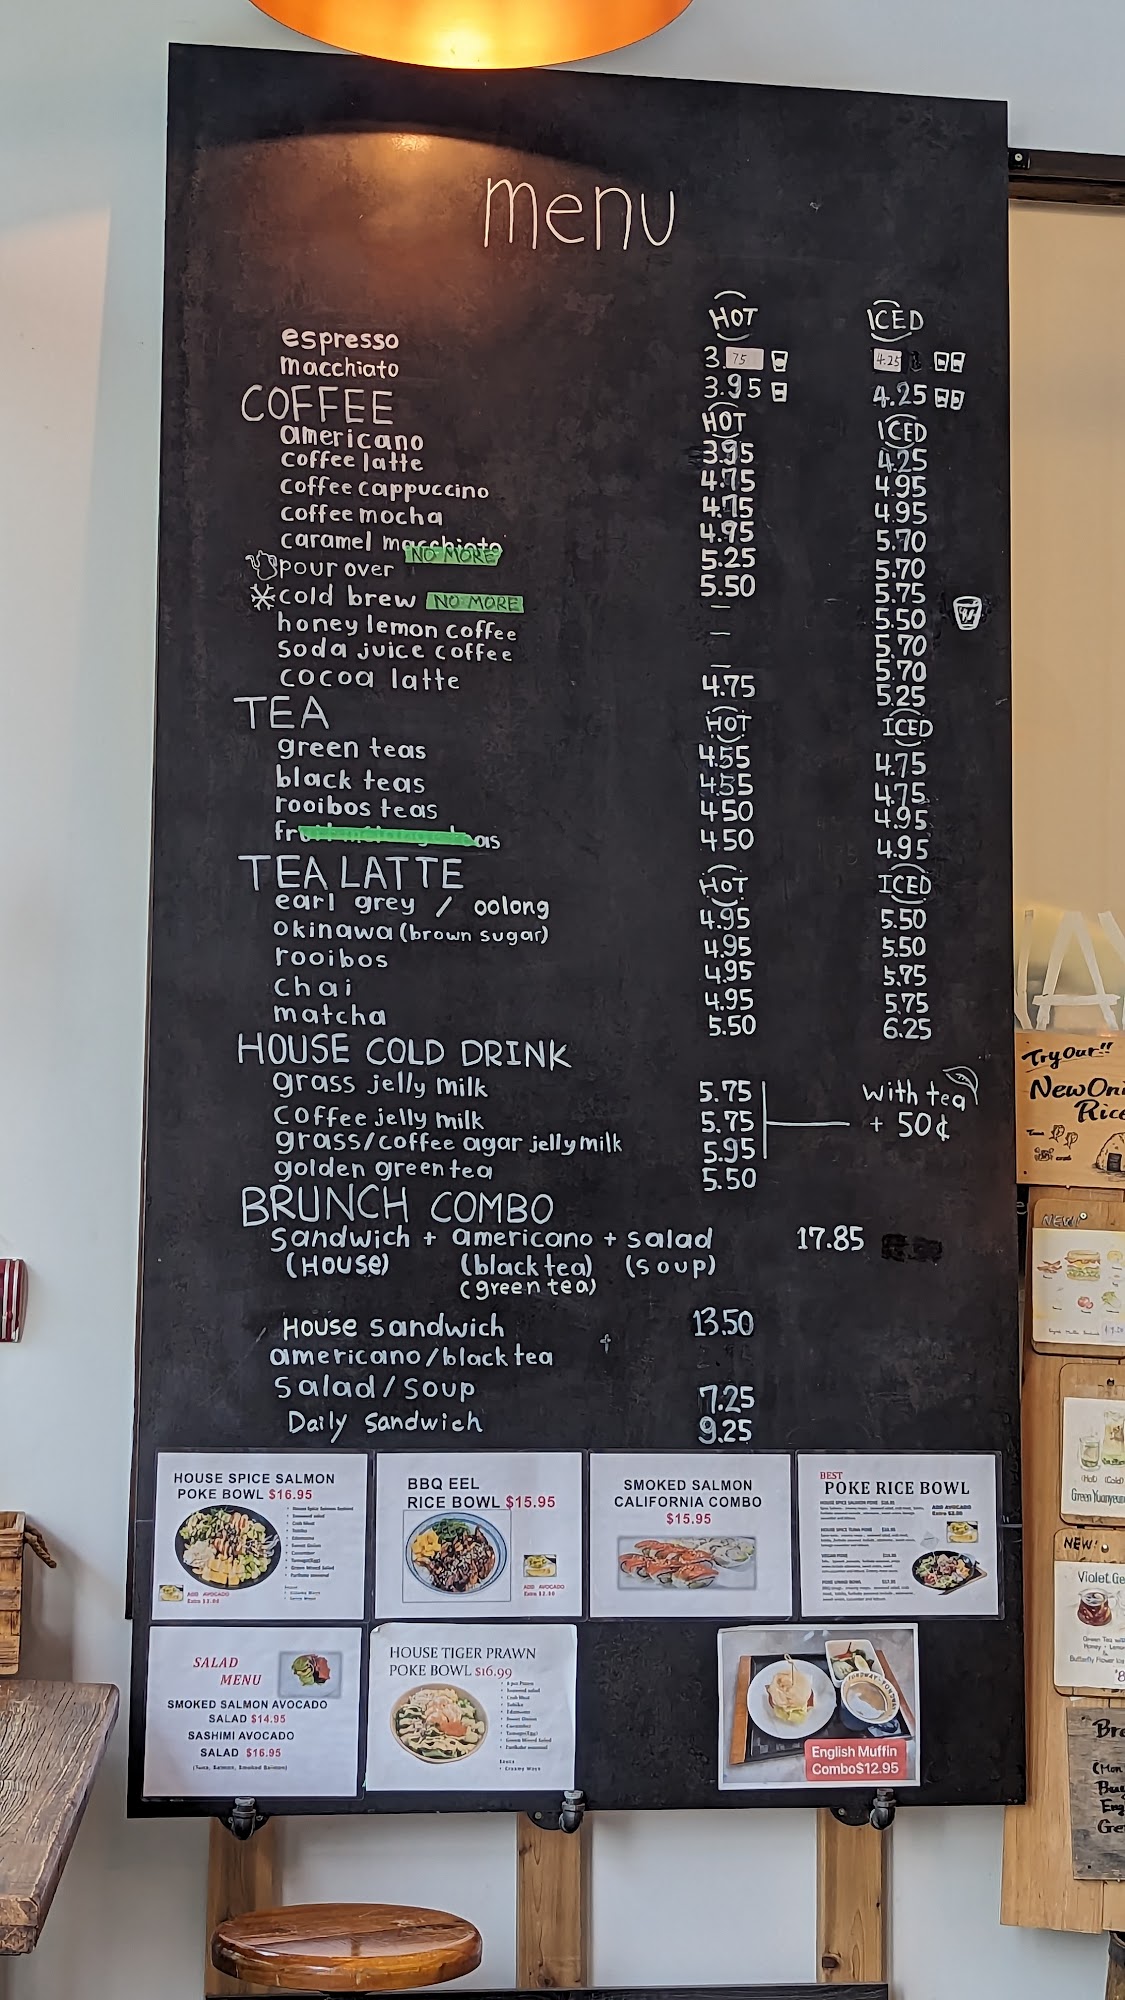 menu
HOT ICED
espresso 3.75 4.25
macchiato 3.95 4.25
COFFEE HOT ICED
americano 3.95 4.25
coffee latte 4.75 4.95
coffee cappuccino 4.75 4.95
coffee mocha 4.95 5.70
caramel macchiato 5.25 5.70
NO MORE
pour over 5.50 5.75
cold brew NO MORE — 5.50
honey lemon coffee — 5.70
soda juice coffee — 5.70
cocoa latte 4.75 5.25
TEA HOT ICED
green teas 4.55 4.75
black teas 4.55 4.75
rooibos teas 4.50 4.95
4.50 4.95
TEA LATTE HOT ICED
earl grey / oolong 4.95 5.50
okinawa (brown sugar) 4.95 5.50
rooibos 4.95 5.75
chai 4.95 5.75
matcha 5.50 6.25
HOUSE COLD DRINK
grass jelly milk 5.75 with tea
coffee jelly milk 5.75 + 50¢
grass/coffee agar jelly milk 5.95
golden green tea 5.50
BRUNCH COMBO
sandwich + americano + salad 17.85
(House) (black tea) (soup)
(green tea)
House sandwich 13.50
americano/black tea
salad/soup 7.25
Daily sandwich 9.25
HOUSE SPICE SALMON
POKE BOWL $16.95
House Spice Salmon
Seaweed salad
Crab Meat
Tobiko
Edamame
Sweet Onion
Cucumber
Tamago(Egg)
Green Mixed Salad
Furikake seaweed
ADD AVOCADO
Extra $2.00
BBQ EEL
RICE BOWL $15.95
ADD AVOCADO
Extra $2.00
SMOKED SALMON
CALIFORNIA COMBO
$15.95
BEST
POKE RICE BOWL
HOUSE SPICE SALMON POKE
HOUSE SPICE TUNA POKE
VEGAN POKE
ADD AVOCADO
Extra $2.00
SALAD
MENU
SMOKED SALMON AVOCADO
SALAD $14.95
SASHIMI AVOCADO
SALAD $16.95
(Tuna, Salmon, Smoked Salmon)
HOUSE TIGER PRAWN
POKE BOWL $16.99
Seaweed salad
Crab Meat
Tobiko
Edamame
Sweet Onion
Cucumber
Tamago(Egg)
Green Mixed Salad
Furikake seaweed
Sauce
Creamy Mayo
English Muffin
Combo$12.95
Try our!!
New Oni
Rice
NEW!
(Hot) (Cold)
NEW!
Violet Ge
Green Tea with
Honey + Lemon
&
Butterfly Flower
(Mon